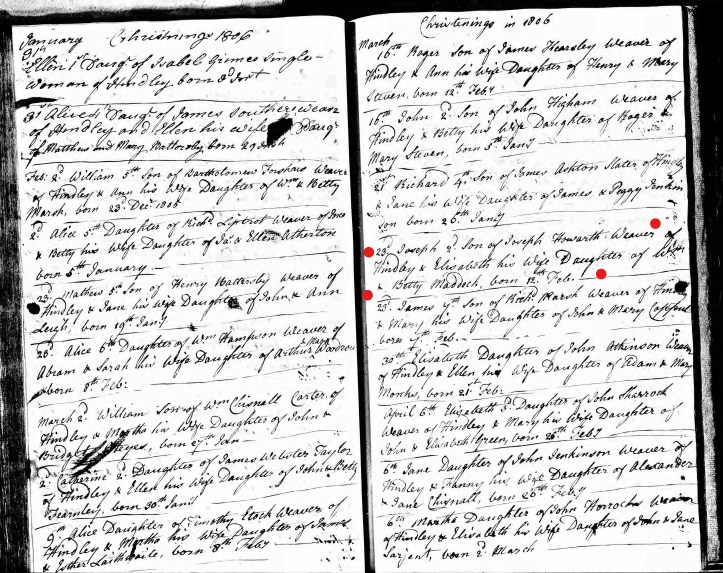 January Christnings 1806
Ellen 1st Daugr of Isabel Grimes Single-
Woman of Hindley, born
Alice Daugr of James
of Hindley and Ellen his wife Daugr
of Matthew and Mary born 29
Feb: 2d William 5th Son of Bartholomew Weaver
of Hindley & Ann his Wife Daughter of Wm & Betty
Marsh, born 23d Decr 1805
2d Alice 5th Daughter of Richd Liptrot Weaver of
& Betty his Wife Daughter of Jas & Ellen Atherton
born 5th January
23d Mathew 5th Son of Henry Battersby Weaver of
Hindley & Jane his Wife Daughter of John & Ann
Leigh, born 19th Jany
23d Alice 6th Daughter of Wm Hampson Weaver of
Abram & Sarah his Wife Daughter of Arthur & Mary Woodrow
born 8th Feb:
March 2d William Son of Wm Chisnall Carter of
Hindley & Martha his Wife Daughter of John &
Bridget Heyes, born 27th Jan
2d Catherine 2d Daughter of James Webster Taylor
of Hindley & Ellen his Wife Daughter of John & Betty
Fearnley, born 30th Jany
9th Alice Daughter of Timothy Weaver of
Hindley & Martha his Wife Daughter of James
& Esther Laithwaite, born 8th Feby
Christenings in 1806
March
16th Roger Son of James Hearsley Weaver of
Hindley & Ann his Wife Daughter of Henry & Mary
Steven, born 12th Feby
16th John 2d Son of John Higham Weaver of
Hindley & Betty his Wife Daughter of Roger &
Mary Steven, born 5th Jany
Richard 4th Son of James Ashton Slater of Hindley
& Jane his Wife Daughter of James & Peggy Jenkin
son born 26th Jany
23d Joseph 2d Son of Joseph Howarth Weaver of
Hindley & Elisabeth his Wife Daughter of Wm
& Betty Maddock, born 12th Feb.
23d James 4th Son of Richd Marsh Weaver of Hind
& Mary his Wife Daughter of John & Mary
born 7th Feb.
30th Elisabeth Daughter of John Atkinson Weaver
of Hindley & Ellen his Wife Daughter of Adam & Mary
Monks, born 21st Feb:
April 6th Elizabeth 3d Daughter of John Sharrock
Weaver of Hindley & Mary his Wife Daughter of
John & Elisabeth Green, born 26th Feby
6th Jane Daughter of John Jenkinson Weaver of
Hindley & Fanny his Wife Daughter of Alexander
& Jane Chisnall, born 26th Feby
6th Martha Daughter of John Horrocks Weaver
of Hindley & Elisabeth his Wife Daughter of John & Jane
Sargent, born 2d March